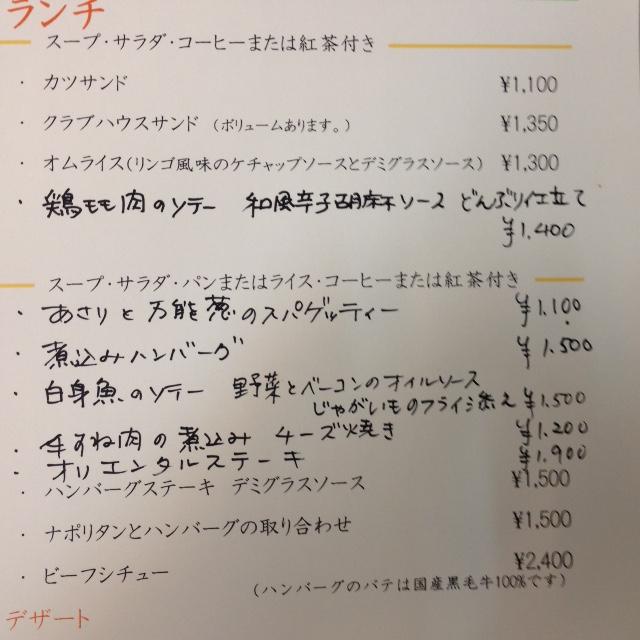 ランチ
スープ・サラダ・コーヒーまたは紅茶付き
・カツサンド ¥1,100
・クラブハウスサンド (ボリュームあります。) ¥1,350
・オムライス(リンゴ風味のケチャップソースとデミグラスソース) ¥1,300
・鶏モモ肉のソテー 和風辛子胡麻ソース どんぶり仕立て
¥1.400
スープ・サラダ・パンまたはライス・コーヒーまたは紅茶付き
・あさりと万能葱のスパゲッティー ¥1.100
・煮込みハンバーグ ¥1.500
・白身魚のソテー 野菜とベーコンのオイルソース
じゃがいものフライ添え ¥1.500
・牛すね肉の煮込み チーズ焼き ¥1.200
・オリエンタルステーキ ¥1.900
・ハンバーグステーキ デミグラスソース ¥1,500
・ナポリタンとハンバーグの取り合わせ ¥1,500
・ビーフシチュー ¥2,400
(ハンバーグのパテは国産黒毛牛100%です)
デザート